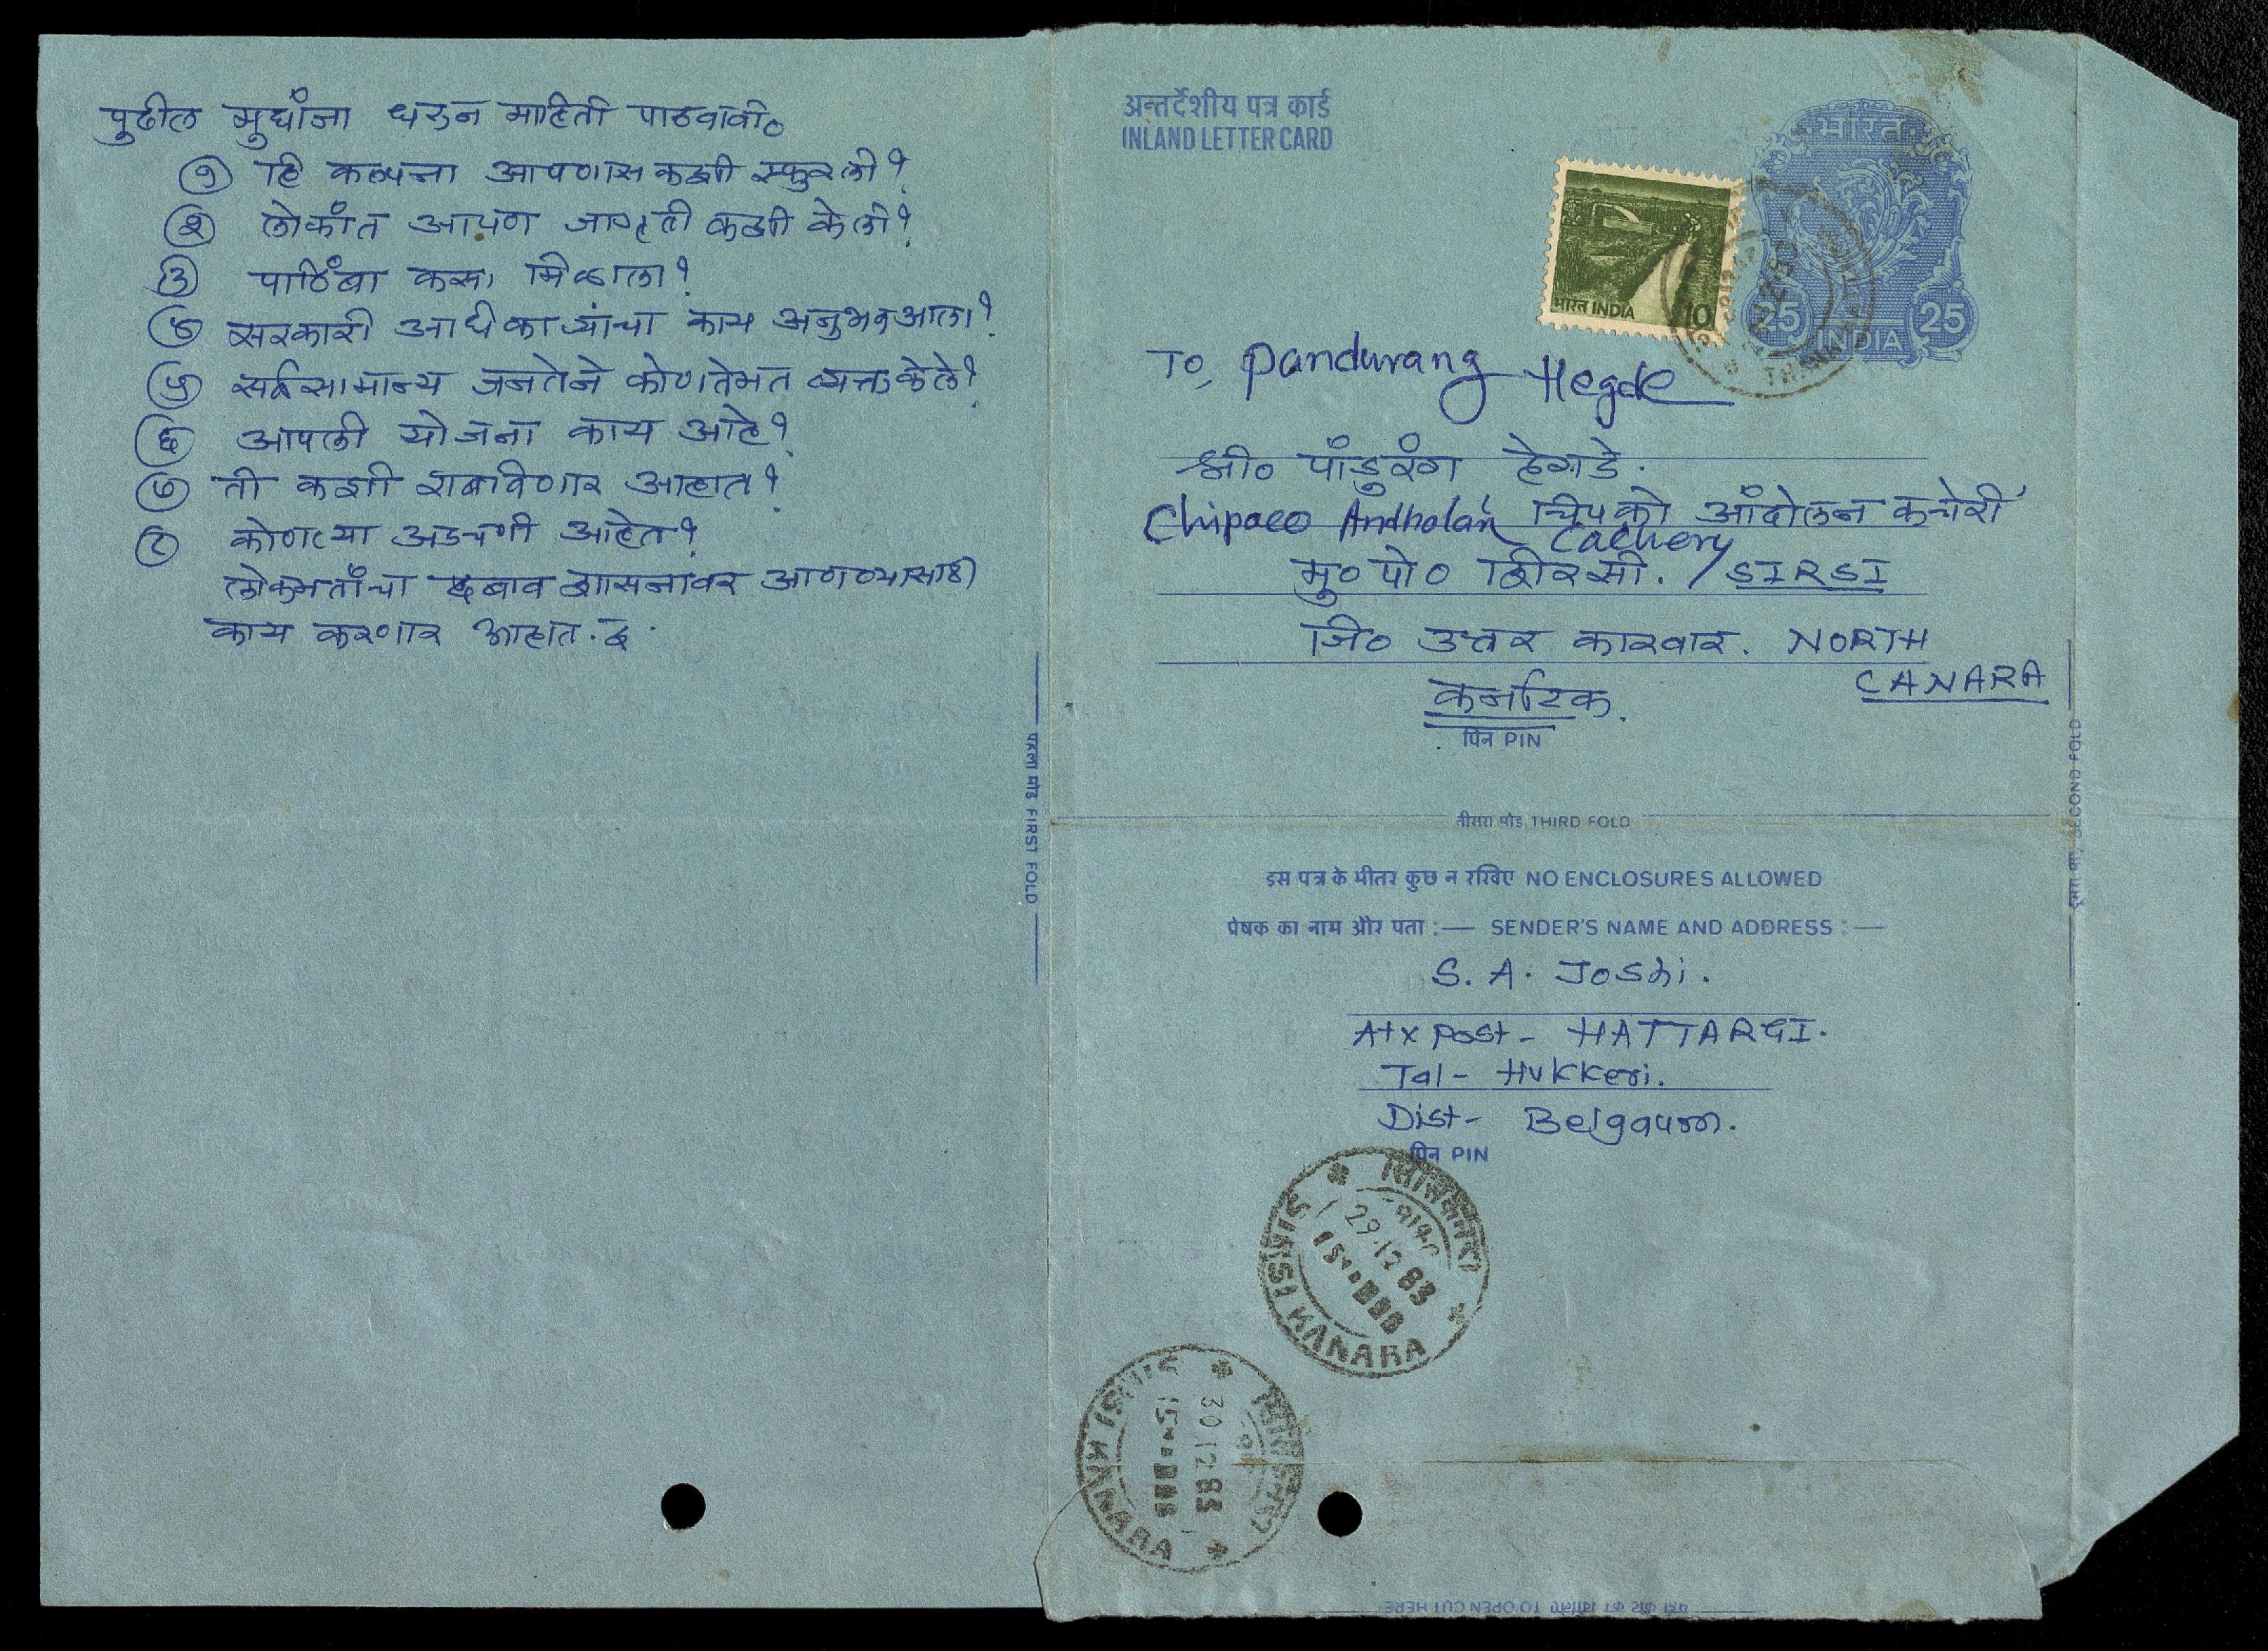 पुढील मुद्यांना धरुन माहिती पाठवावी०
१ हि कल्पना आपणास कशी स्फुरली?
२ लोकांत आपण जागृती कशी केली?
३ पाठिंबा कसा मिळाला?
४ सरकारी आधिकाऱ्यांचा काय अनुभव आला?
५ सर्वसामान्य जनतेने कोणतेमत व्यक्त केले?
६ आपली योजना काय आहे?
७ ती कशी राबविणार आहात?
८ कोणत्या अडचणी आहेत?
लोकमतांचा दबाव शासनावर आणण्यासाठी
काय करणार आहात. इ.
अन्तर्देशीय पत्र कार्ड
INLAND LETTER CARD
भारत
25 25
INDIA
भारत INDIA 10
To, Pandurang Hegde
श्री० पांडुरंग हेगडे.
Chipaco Andholan चिपको आंदोलन कचेरी
Cachery
मु० पो० शिरसी. / SIRSI
जि० उत्तर कारवार. NORTH
CANARA
कर्नाटक.
पिन PIN
पहला मोड़ FIRST FOLD
SECOND FOLD
तीसरा मोड़ THIRD FOLD
इस पत्र के भीतर कुछ न रखिए NO ENCLOSURES ALLOWED
प्रेषक का नाम और पता :— SENDER'S NAME AND ADDRESS :—
S. A. Joshi.
At x Post - HATTARGI.
Tal - Hukkeri.
Dist - Belgaum.
पिन PIN
29.12.83
KANARA
30 12 83
KANARA
TO OPEN CUT HERE